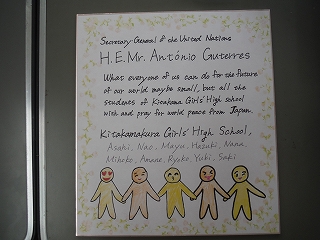 Secretary-General of the United Nations
H.E.Mr. António Guterres
What everyone of us can do for the future
of our world maybe small, but all the
students of Kitakama Girls' High school
wish and pray for world peace from Japan.
Kitakamakura Girls' High School,
Asahi, Nao, Mayu, Hazuki, Nana,
Mihoko, Amane, Ryoko, Yuki, Saki